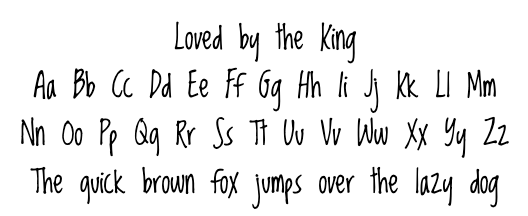 Loved by the King
Aa Bb Cc Dd Ee Ff Gg Hh Ii Jj Kk Ll Mm
Nn Oo Pp Qq Rr Ss Tt Uu Vv Ww Xx Yy Zz
The quick brown fox jumps over the lazy dog